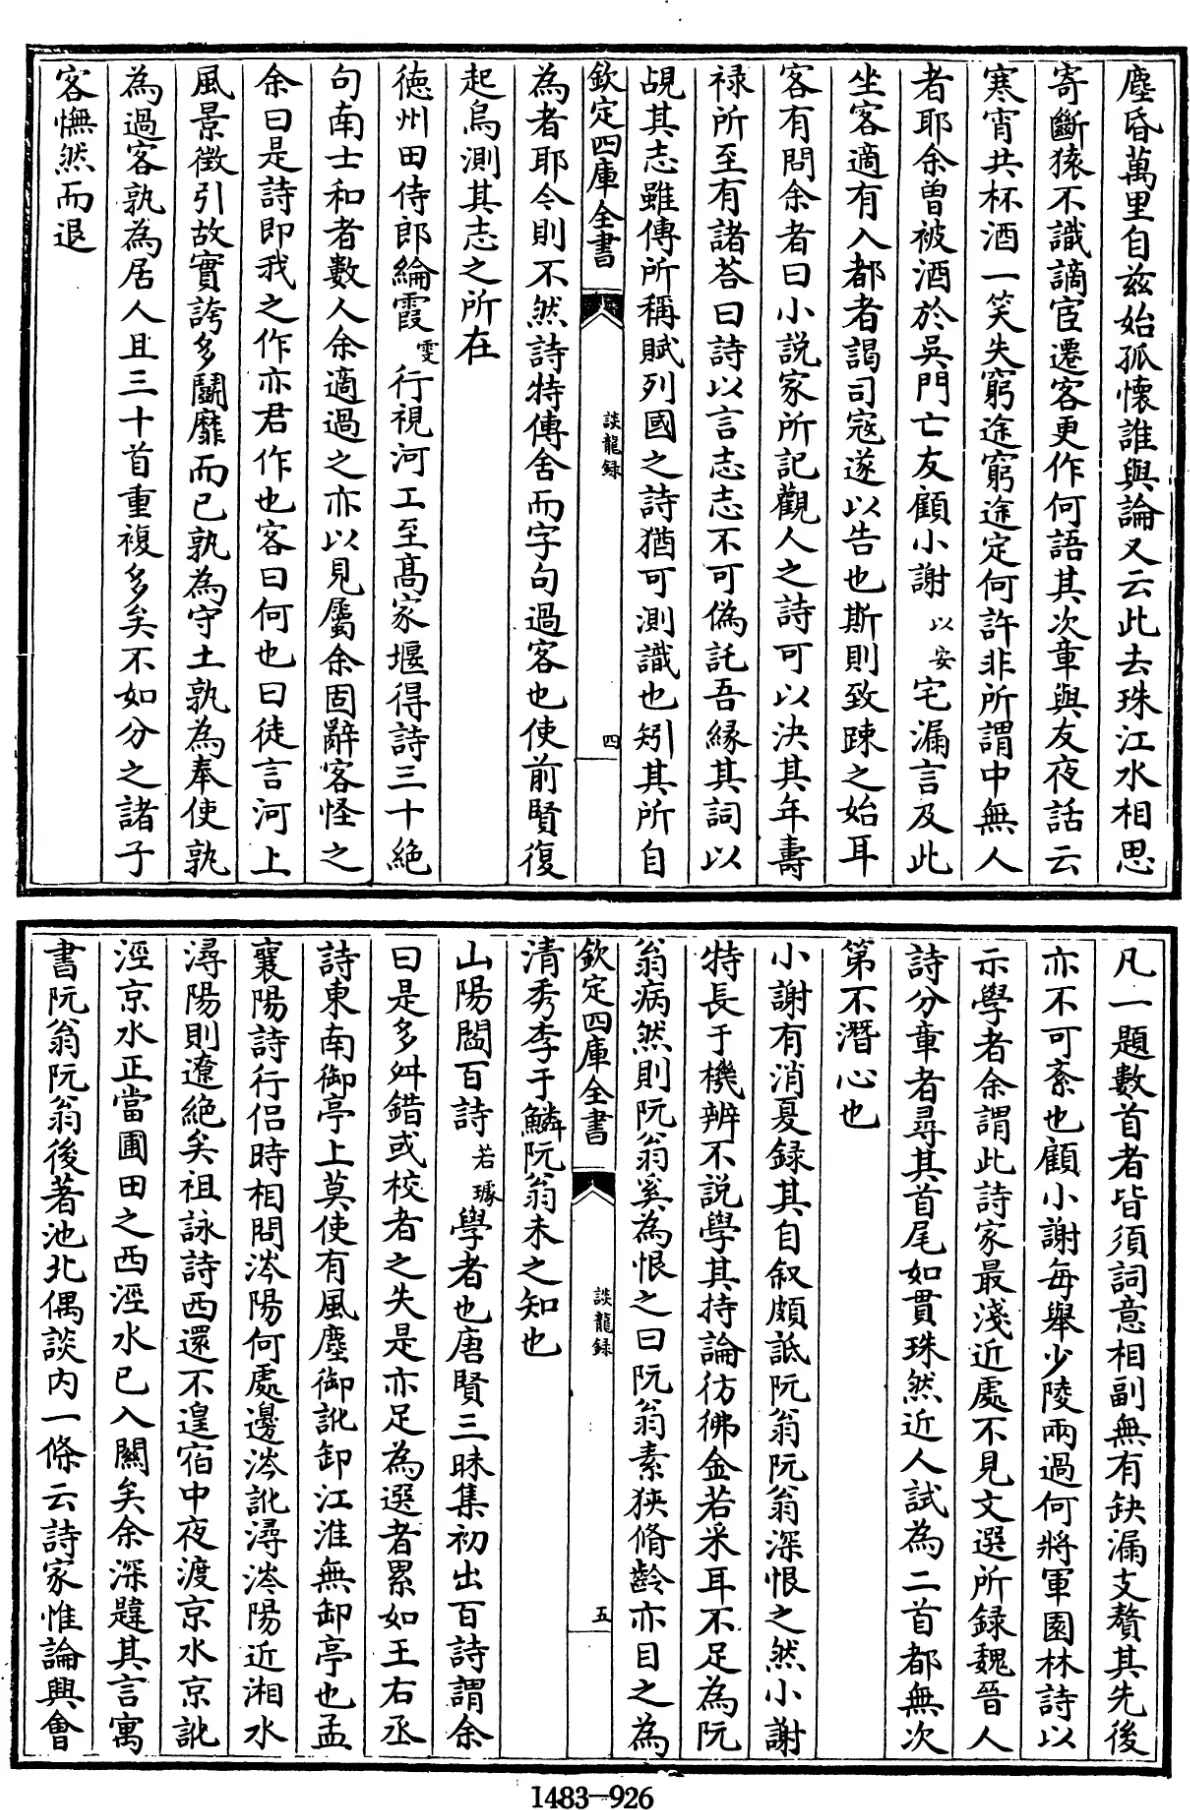 塵昏萬里自兹始孤懷誰與論又云此去珠江水相思
寄斷猿不識謫宦遷客更作何語其次章與友夜話云
寒宵共杯酒一笑失窮途窮途定何許非所謂中無人
者耶余曾被酒於吳門亡友顧小謝以安宅漏言及此
坐客適有入都者謁司寇遂以告也斯則致踈之始耳
客有問余者曰小說家所記觀人之詩可以決其年壽
祿所至有諸荅曰詩以言志志不可偽託吾緣其詞以
覘其志雖傳所稱賦列國之詩猶可測識也矧其所自
欽定四庫全書
談龍録
四
為者耶今則不然詩特傳舍而字句過客也使前賢復
起烏測其志之所在
德州田侍郎綸霞雯行視河工至髙家堰得詩三十絶
句南士和者數人余適過之亦以見屬余固辭客怪之
余曰是詩即我之作亦君作也客曰何也曰徒言河上
風景徵引故實誇多鬭靡而已孰為守土孰為奉使孰
為過客孰為居人且三十首重複多矣不如分之諸子
客憮然而退
凡一題數首者皆須詞意相副無有缺漏支贅其先後
亦不可紊也顧小謝每舉少陵兩過何將軍園林詩以
示學者余謂此詩家最淺近處不見文選所録魏晉人
詩分章者尋其首尾如貫珠然近人試為二首都無次
第不潛心也
小謝有消夏録其自叙頗詆阮翁阮翁深恨之然小謝
特長于機辨不說學其持論彷彿金若采耳不足為阮
翁病然則阮翁奚為恨之曰阮翁素狹脩齡亦目之為
欽定四庫全書
談龍録
五
清秀李于鱗阮翁未之知也
山陽閻百詩若璩學者也唐賢三昧集初出百詩謂余
曰是多舛錯或校者之失是亦足為選者累如王右丞
詩東南御亭上莫使有風塵御訛卸江淮無卸亭也孟
襄陽詩行侣時相問涔陽何處邊涔訛潯涔陽近湘水
潯陽則遼絶矣祖詠詩西還不遑宿中夜渡京水京訛
涇京水正當圃田之西涇水已入關矣余深韙其言寓
書阮翁阮翁後著池北偶談内一條云詩家惟論興會
1483-926